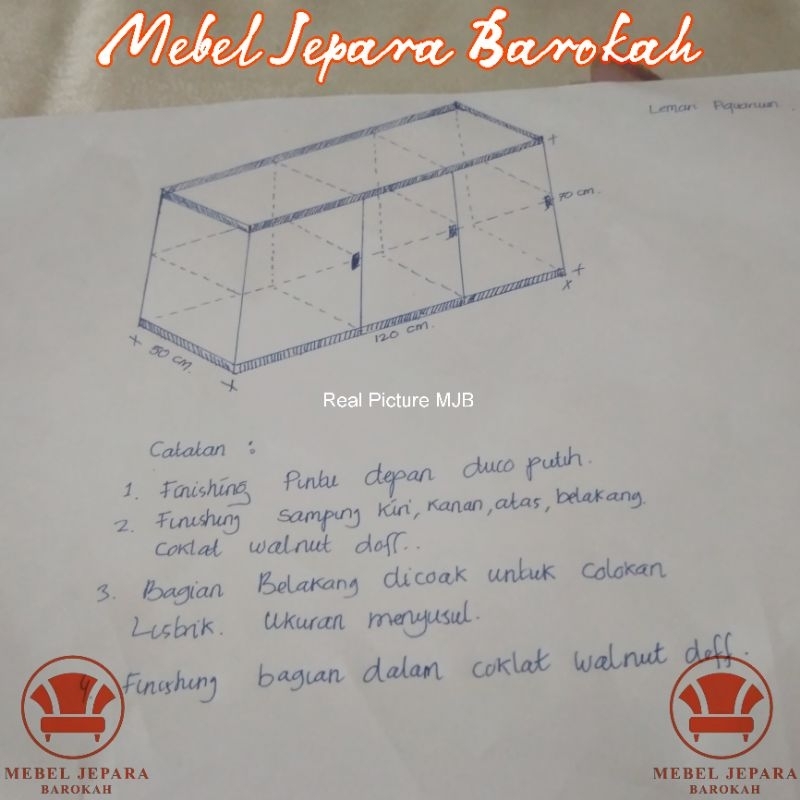 Mebel Jepara Barokah
Lemari Aquarium.
70 cm.
120 cm.
50 cm.
Real Picture MJB
Catatan :
1. Finishing Pintu depan duco putih.
2. Finishing samping kiri, kanan, atas, belakang.
coklat walnut doff..
3. Bagian Belakang dicoak untuk colokan
Listrik. Ukuran menyusul.
4 Finishing bagian dalam coklat walnut doff.
MEBEL JEPARA
BAROKAH
MEBEL JEPARA
BAROKAH